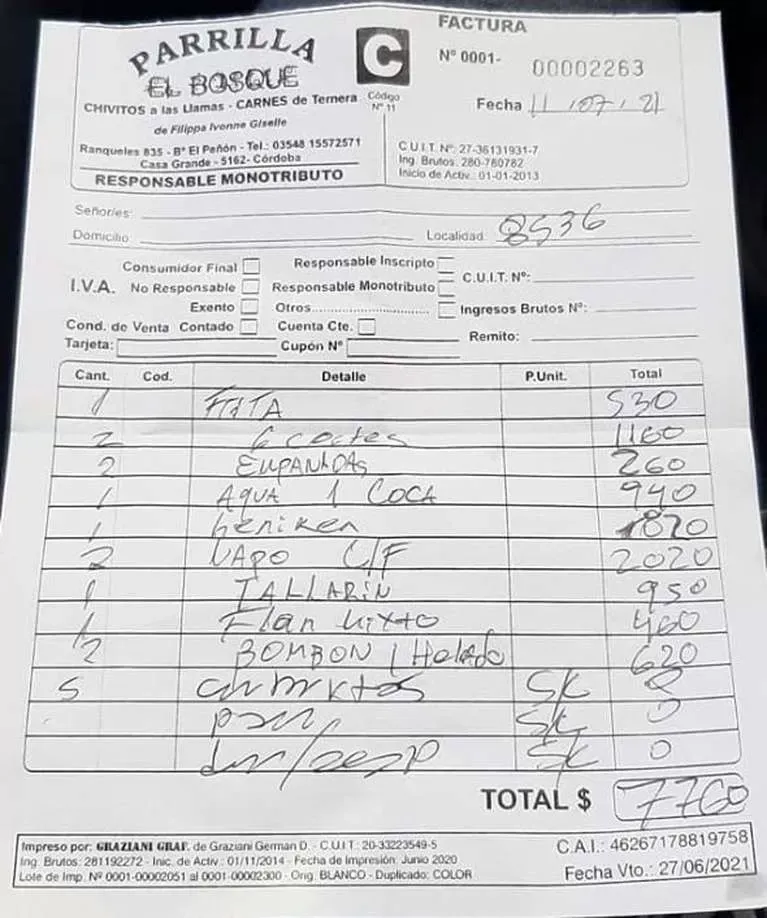 PARRILLA
EL BOSQUE
CHIVITOS a las Llamas - CARNES de Ternera
de Filippa Ivonne Giselle
Ranqueles 835 - Bº El Peñón - Tel.: 03548 15572571
Casa Grande - 5162- Córdoba
RESPONSABLE MONOTRIBUTO
C
Código
Nº 11
FACTURA
Nº 0001- 00002263
Fecha 11/07/21
C.U.I.T. Nº: 27-36131931-7
Ing. Brutos: 280-780782
Inicio de Activ.: 01-01-2013
Señor/es:
Domicilio Localidad: 8536
I.V.A.
Consumidor Final Responsable Inscripto
No Responsable Responsable Monotributo C.U.I.T. Nº:
Exento Otros Ingresos Brutos Nº:
Cond. de Venta Contado Cuenta Cte. Remito:
Tarjeta: Cupón Nº
Cant. Cod. Detalle P.Unit. Total
1 530
2 6 1160
2 EMPANADAS 260
1 AQUA 1 COCA 940
1 heniken 820
2 VAPO C/F 2020
1 TALLARIN 950
1 Flan Mixto 460
2 BOMBON / Helado 620
5 S/C 0
S/C 0
S/C 0
TOTAL $ 7760
Impreso por: GRAZIANI GRAF. de Graziani German D. - C.U.I.T.: 20-33223549-5
Ing. Brutos: 281192272 - Inic. de Activ.: 01/11/2014 - Fecha de Impresión: Junio 2020
Lote de Imp. Nº 0001-00002051 al 0001-00002300 - Orig. BLANCO - Duplicado: COLOR
C.A.I.: 46267178819758
Fecha Vto.: 27/06/2021